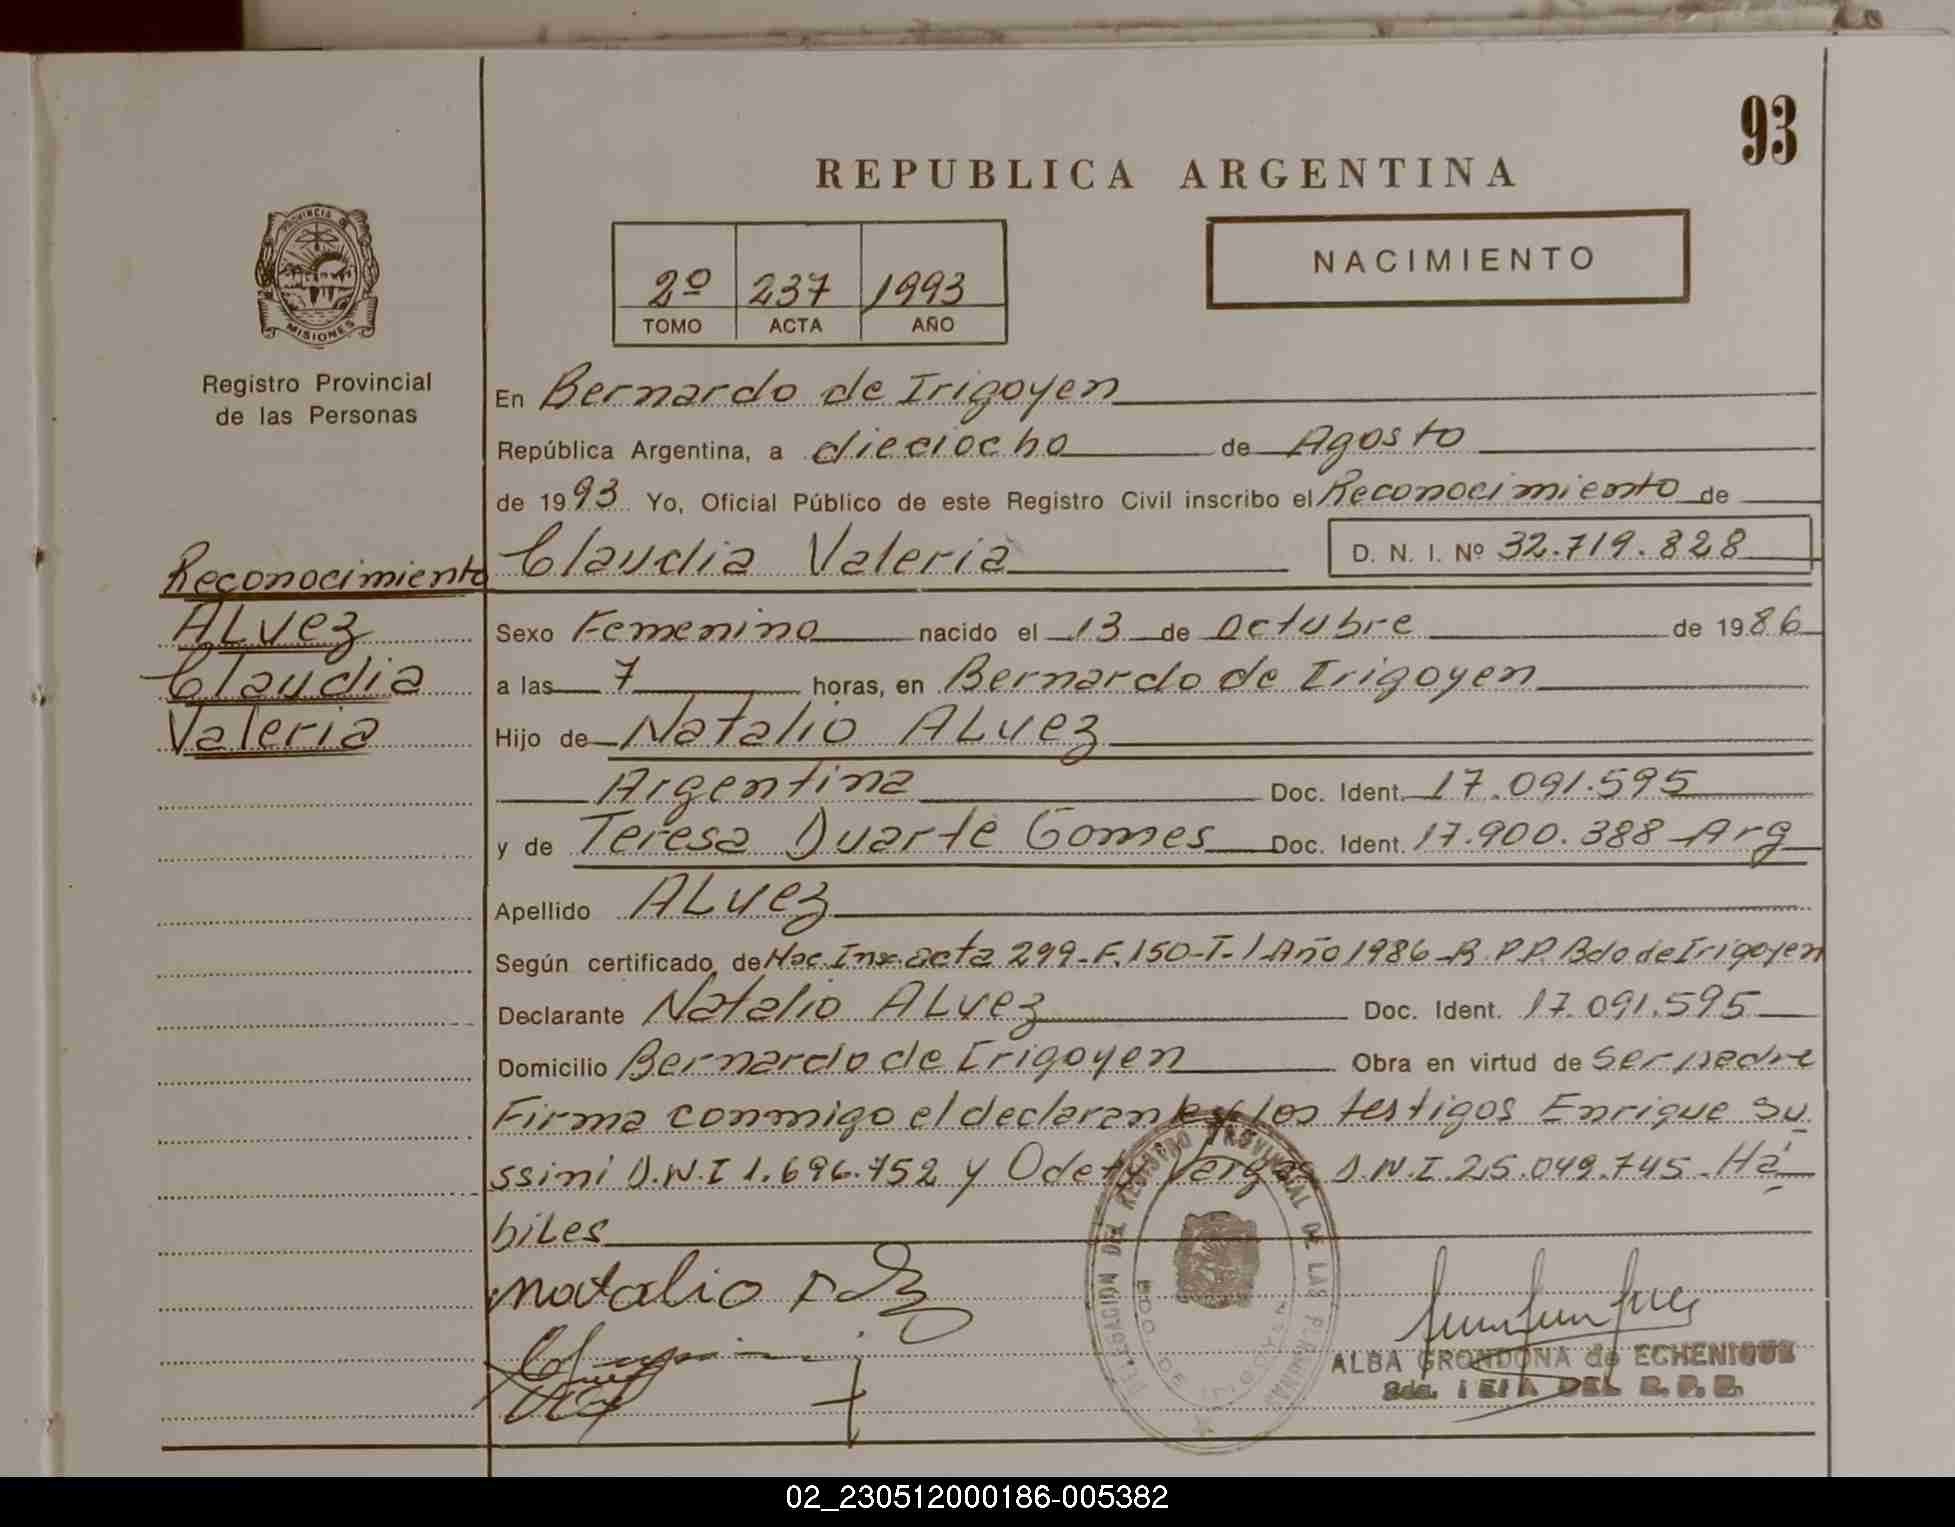 93
REPUBLICA ARGENTINA
PROVINCIA DE
MISIONES
2º 237 1993
TOMO ACTA AÑO
NACIMIENTO
Registro Provincial
de las Personas
En Bernardo de Irigoyen
República Argentina, a dieciocho de Agosto
de 1993 Yo, Oficial Público de este Registro Civil inscribo el Reconocimiento de
Claudia Valeria D. N. I. Nº 32.719.828
Reconocimiento
ALvez
Claudia
Valeria
Sexo Femenino nacido el 13 de Octubre de 1986
a las 7 horas, en Bernardo de Irigoyen
Hijo de Natalio ALvez
Argentina Doc. Ident. 17.091.595
y de Teresa Duarte Gomes Doc. Ident. 17.900.388 Arg
Apellido ALvez
Según certificado de Nac. Ins. acta 299-F.150-T-1 Año 1986-R.P.P. Bdo de Irigoyen
Declarante Natalio ALvez Doc. Ident. 17.091.595
Domicilio Bernardo de Irigoyen Obra en virtud de ser padre
Firma conmigo el declarante y los testigos Enrique Su
ssini D.N.I 1.696.752 y Odety Vargas D.N.I. 25.049.745. Há
biles
Natalio
DELEGACION DEL REGISTRO PROVINCIAL DE LAS PERSONAS
BDO. DE IRIGOYEN
ALBA GRONDONA de ECHENIQUE
DEL R. P. P.
02_230512000186-005382